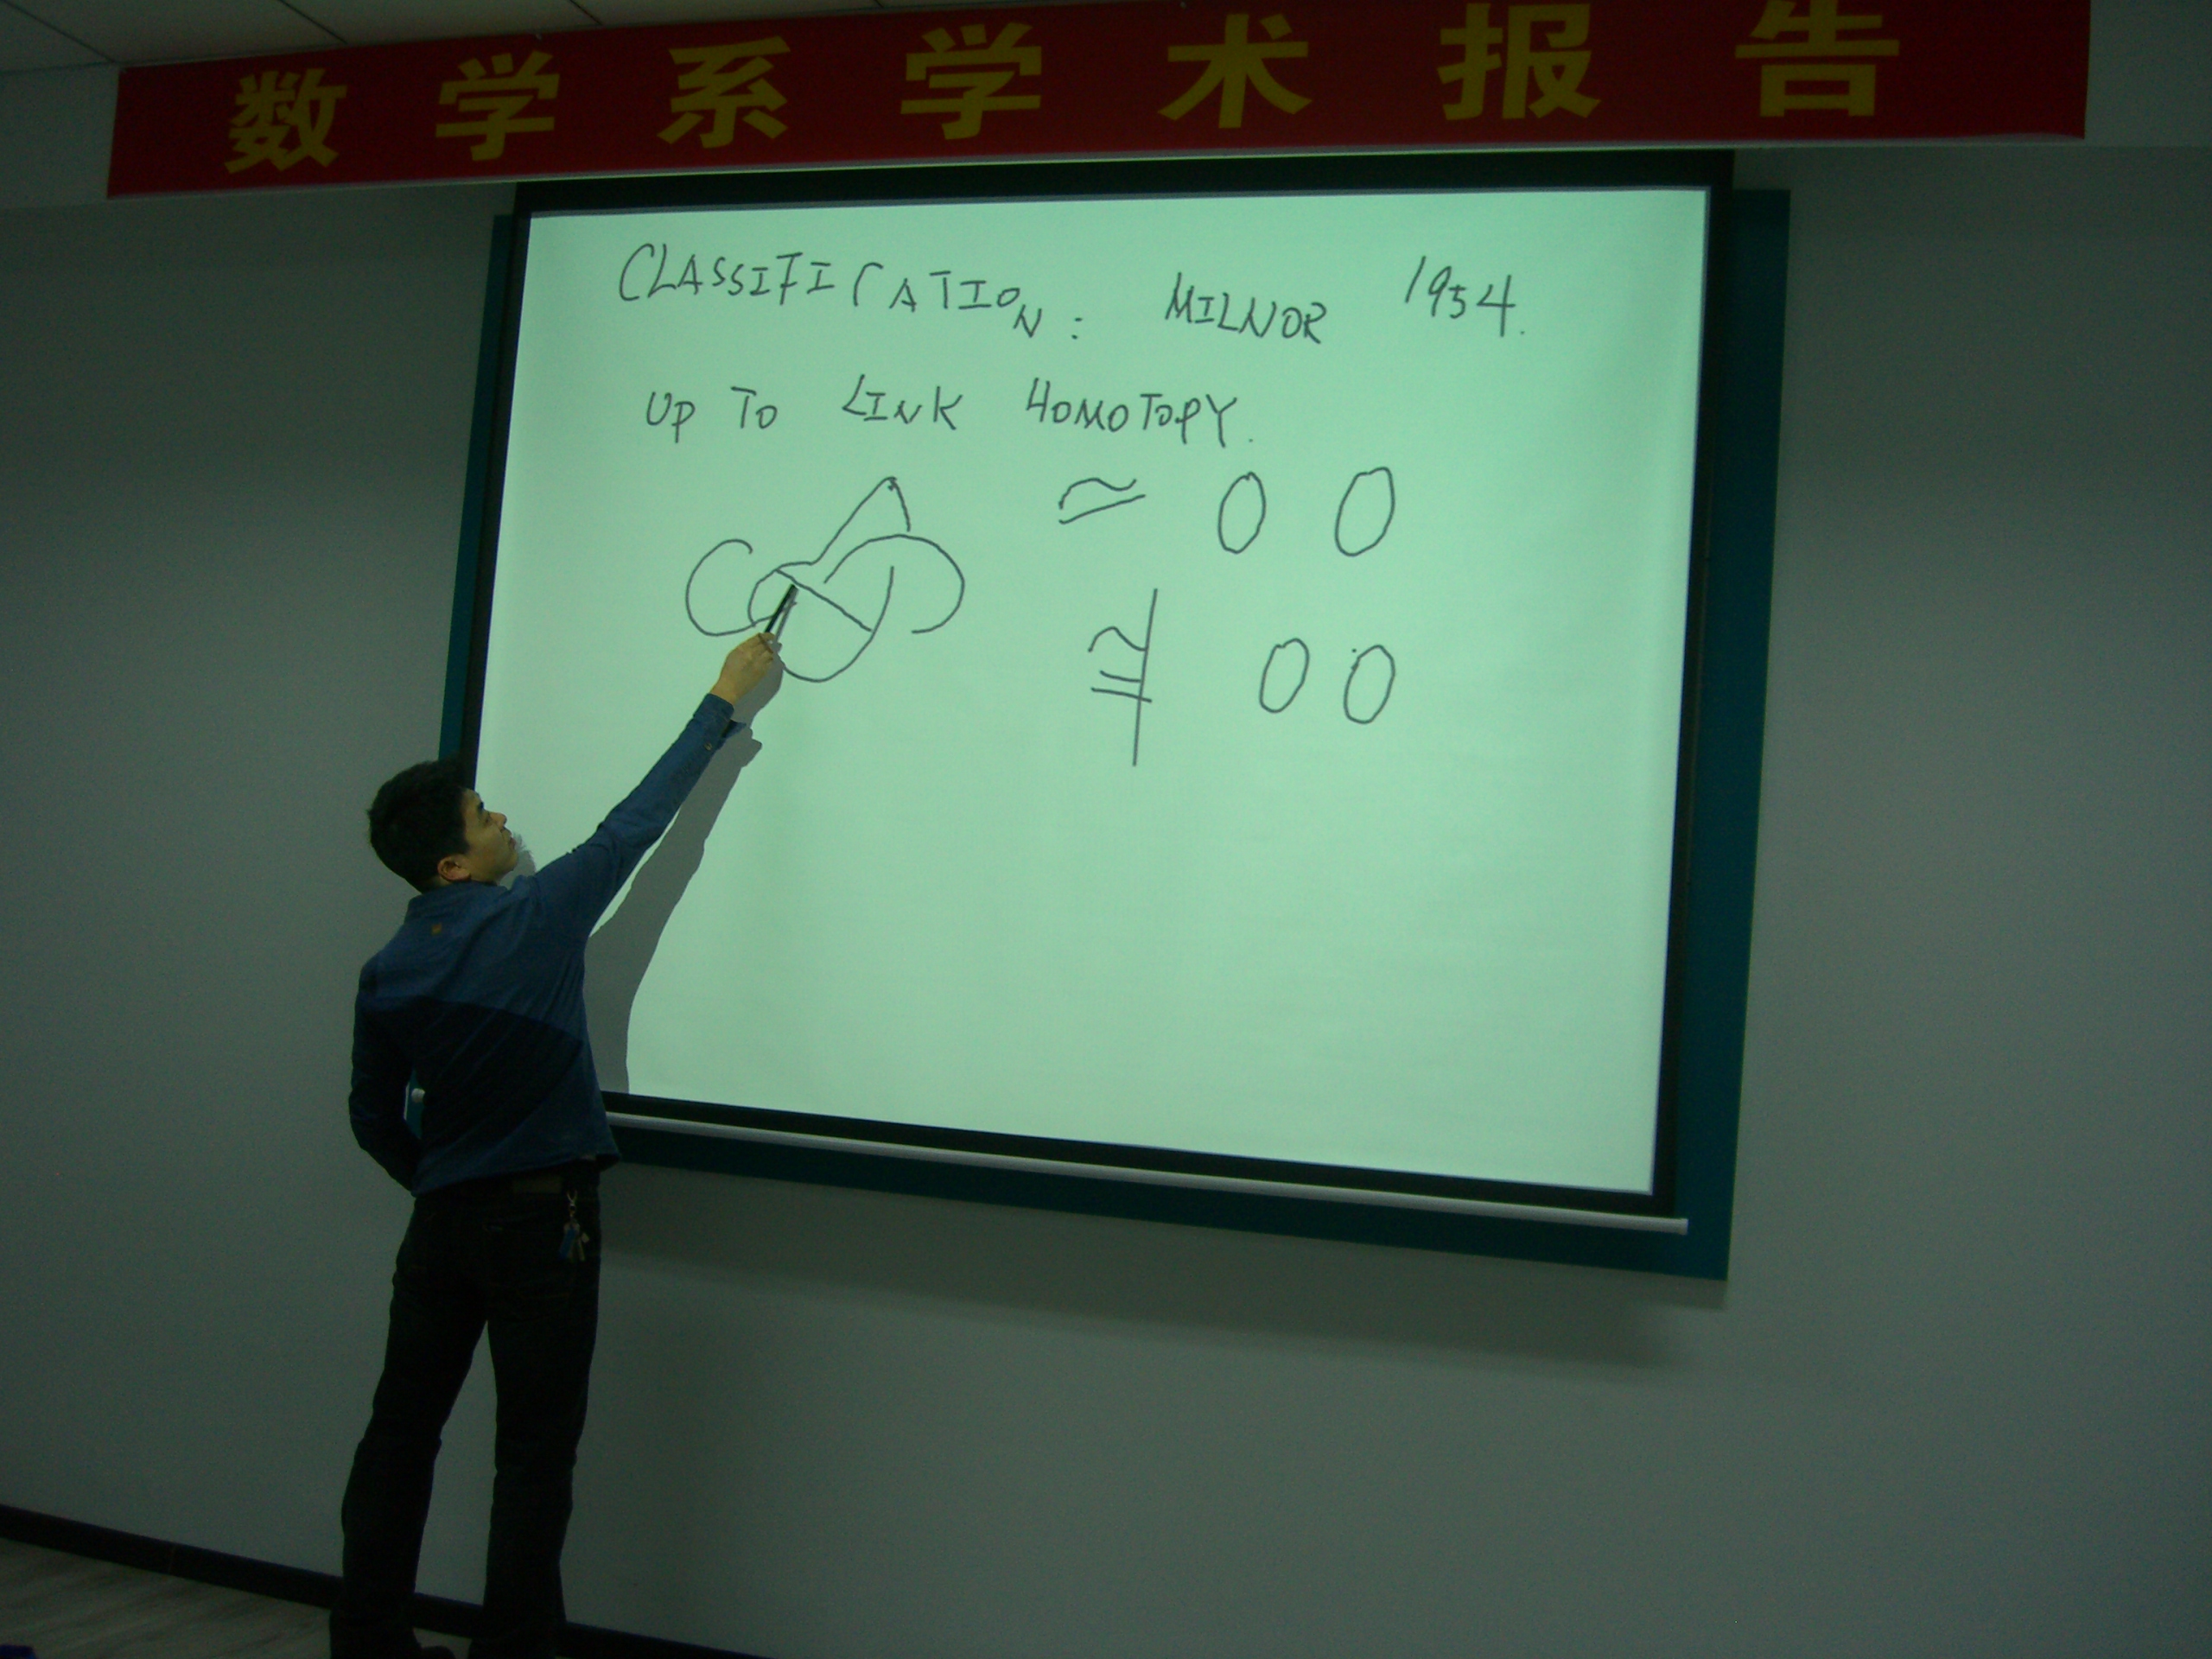 数学系学术报告
CLASSIFICATION: MILNOR 1954.
UP TO LINK HOMOTOPY.
≃ O O
≇ O O